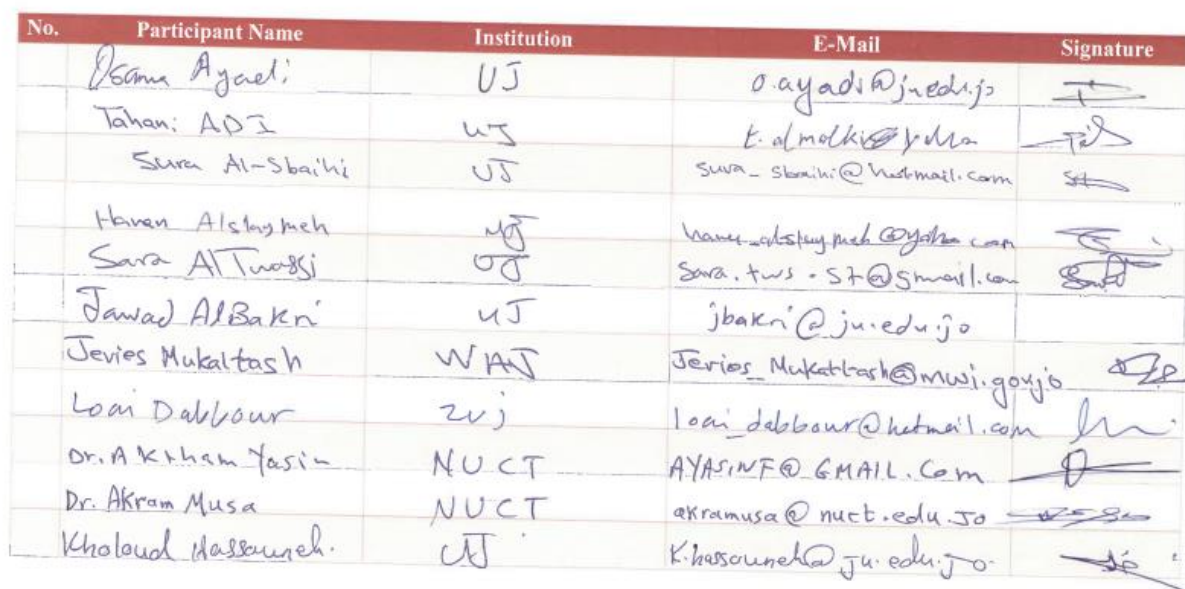 No. Participant Name Institution E-Mail Signature
Osama Ayadi UJ o.ayadi@ju.edu.jo
Tahani ADI UJ
Sura Al-Sbaihi UJ sura_sbaihi@hotmail.com
Hanan Alslaymeh UJ
Sara AlTwassi UJ sara.tws.57@gmail.com
Jawad AlBakri UJ jbakri@ju.edu.jo
Jevies Mukaltash WAJ Jerios_Mukattash@mwi.gov.jo
Loai Dabbour zuj loai_dabbour@hotmail.com
Dr. Aktham Yasin NUCT AYASINF@GMAIL.Com
Dr. Akram Musa NUCT akramusa@nuct.edu.Jo
Kholoud Hassouneh. UJ K.hassouneh@ju.edu.jo.